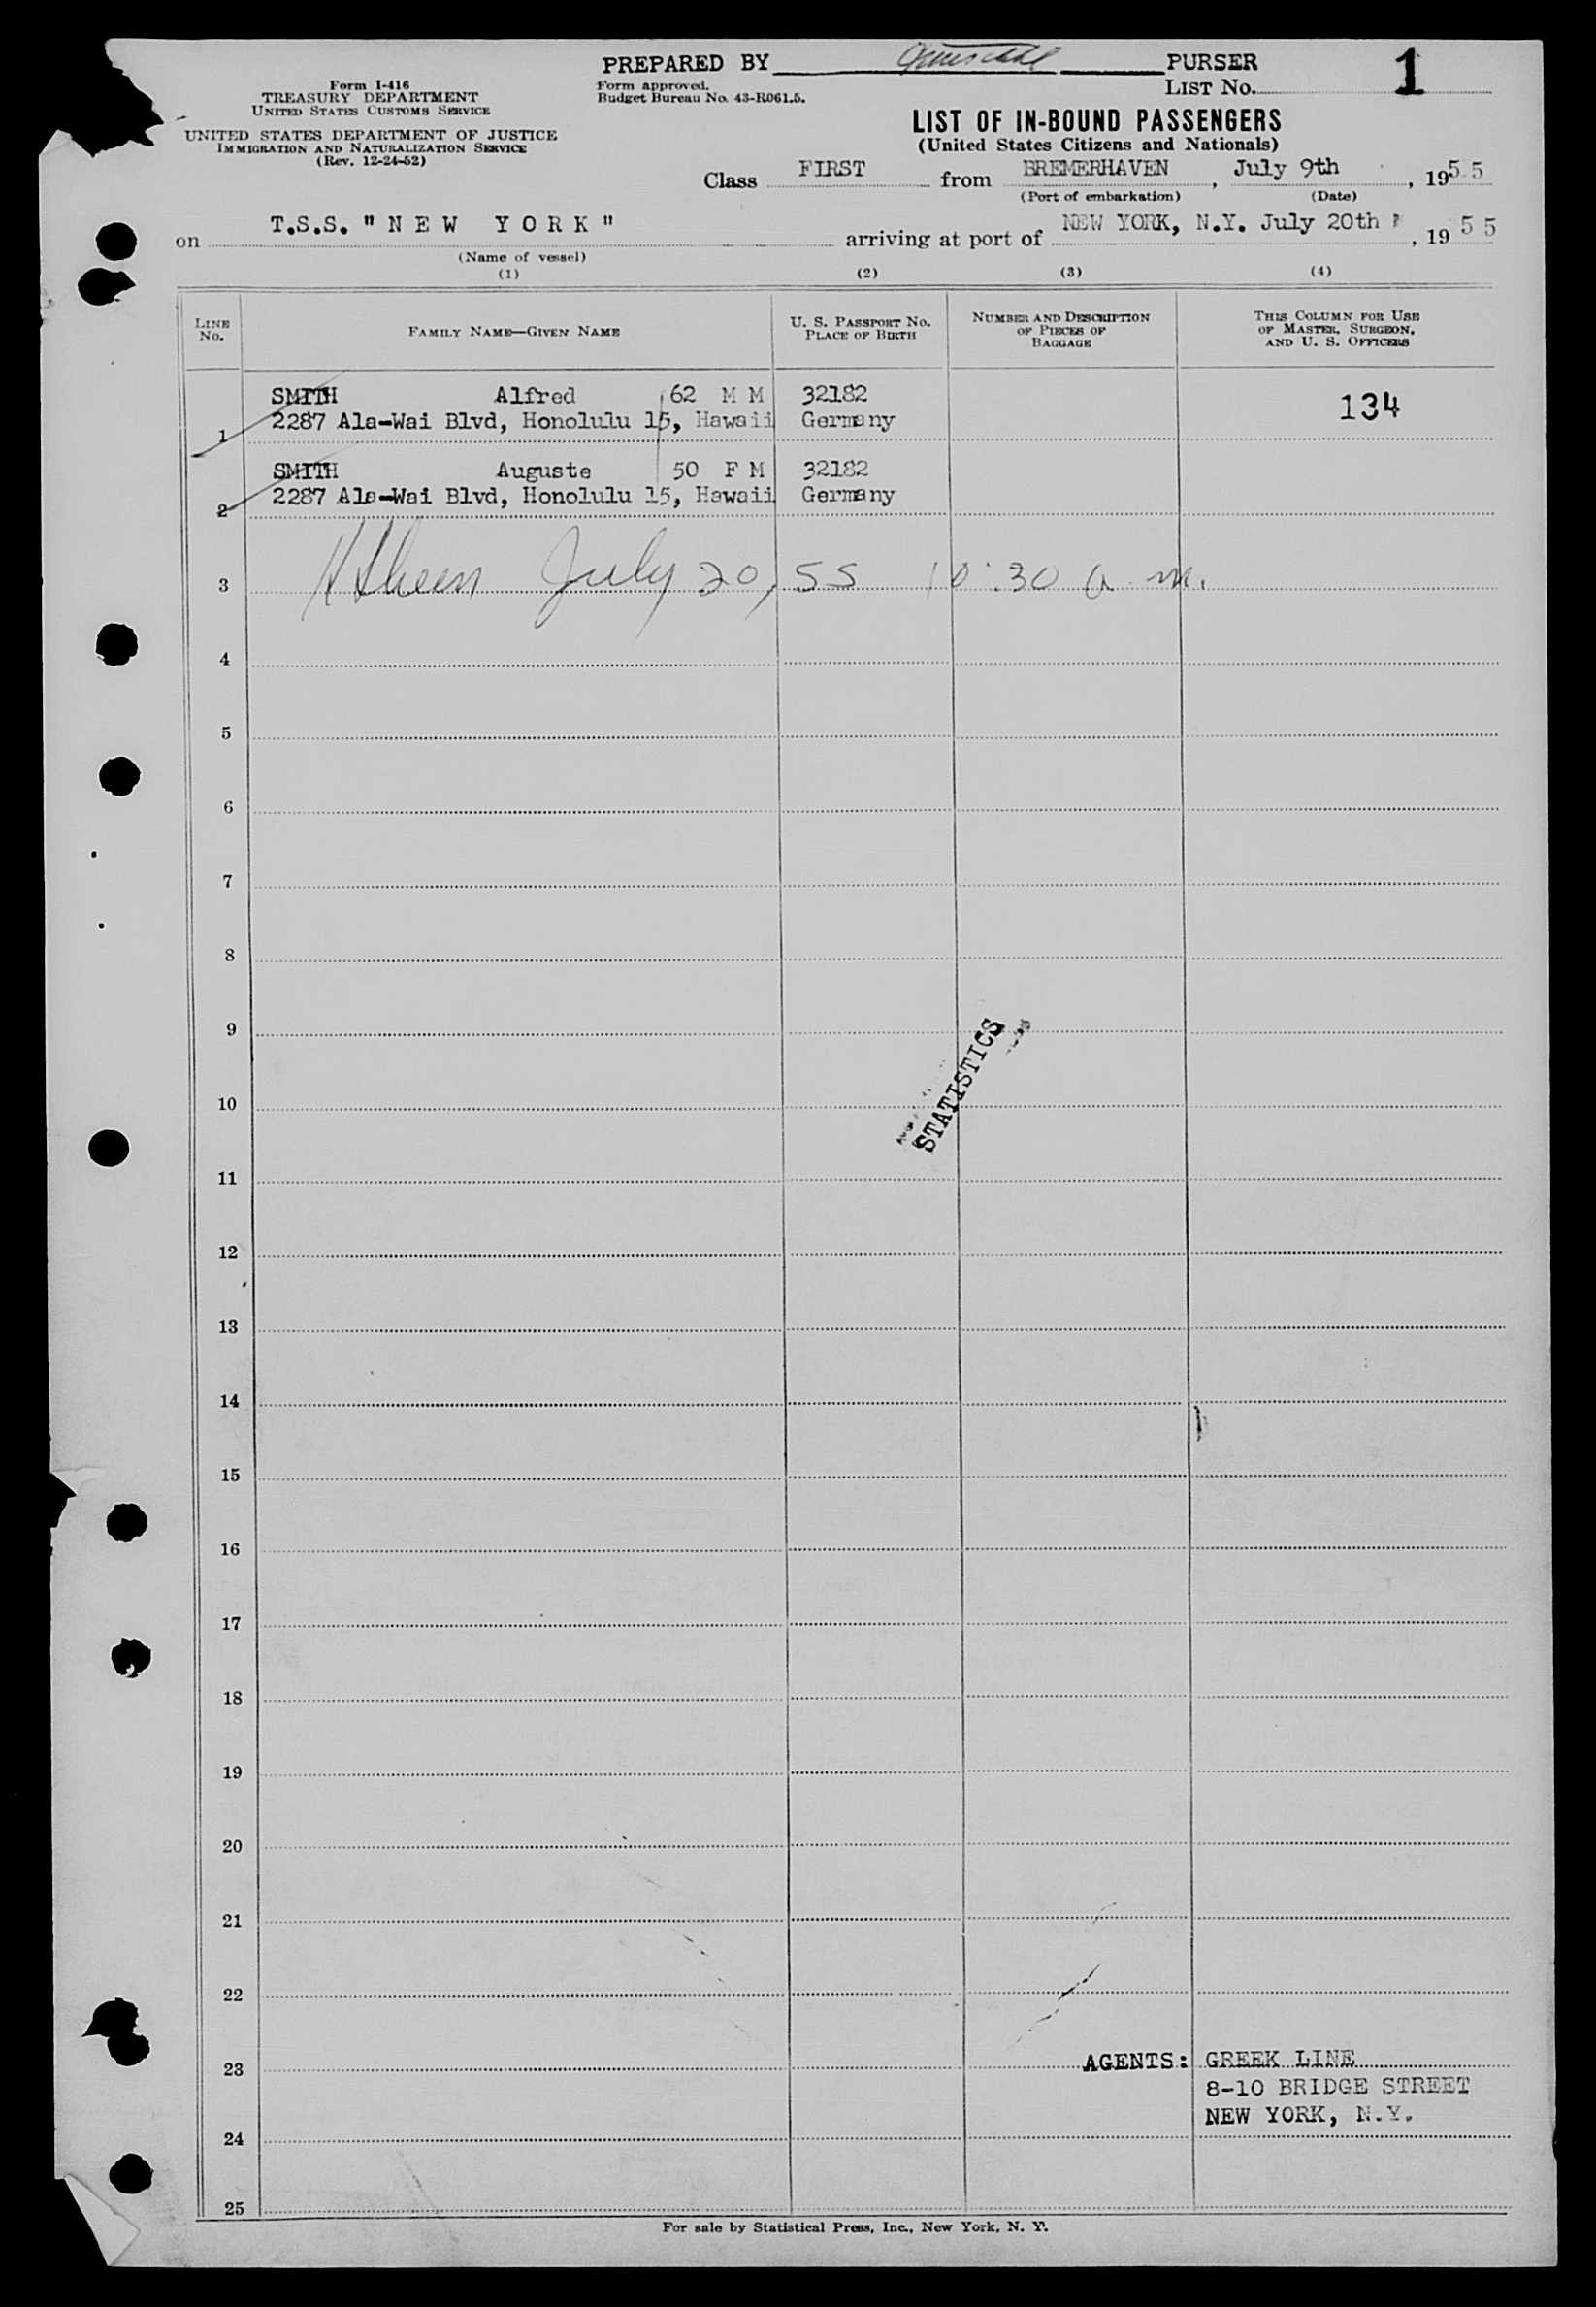 PREPARED BY PURSER
Form I-416
TREASURY DEPARTMENT
UNITED STATES CUSTOMS SERVICE
UNITED STATES DEPARTMENT OF JUSTICE
IMMIGRATION AND NATURALIZATION SERVICE
(Rev. 12-24-52)
Form approved.
Budget Bureau No. 43-R061.5.
LIST No. 1
LIST OF IN-BOUND PASSENGERS
(United States Citizens and Nationals)
Class FIRST from BREMERHAVEN, July 9th, 1955
(Port of embarkation) (Date)
on T.S.S. "NEW YORK" arriving at port of NEW YORK, N.Y. July 20th, 1955
(Name of vessel)
(1) (2) (3) (4)
LINE No. FAMILY NAME—GIVEN NAME U. S. PASSPORT No. PLACE OF BIRTH NUMBER AND DESCRIPTION OF PIECES OF BAGGAGE THIS COLUMN FOR USE OF MASTER, SURGEON, AND U. S. OFFICERS
SMITH Alfred 62 M M 32182 134
1 2287 Ala-Wai Blvd, Honolulu 15, Hawaii Germany
SMITH Auguste 50 F M 32182
2 2287 Ala-Wai Blvd, Honolulu 15, Hawaii Germany
3 July 20, 55 10:30 a.m.
4
5
6
7
8
9
STATISTICS
10
11
12
13
14
15
16
17
18
19
20
21
22
23 AGENTS: GREEK LINE
8-10 BRIDGE STREET
NEW YORK, N.Y.
24
25
For sale by Statistical Press, Inc., New York, N. Y.